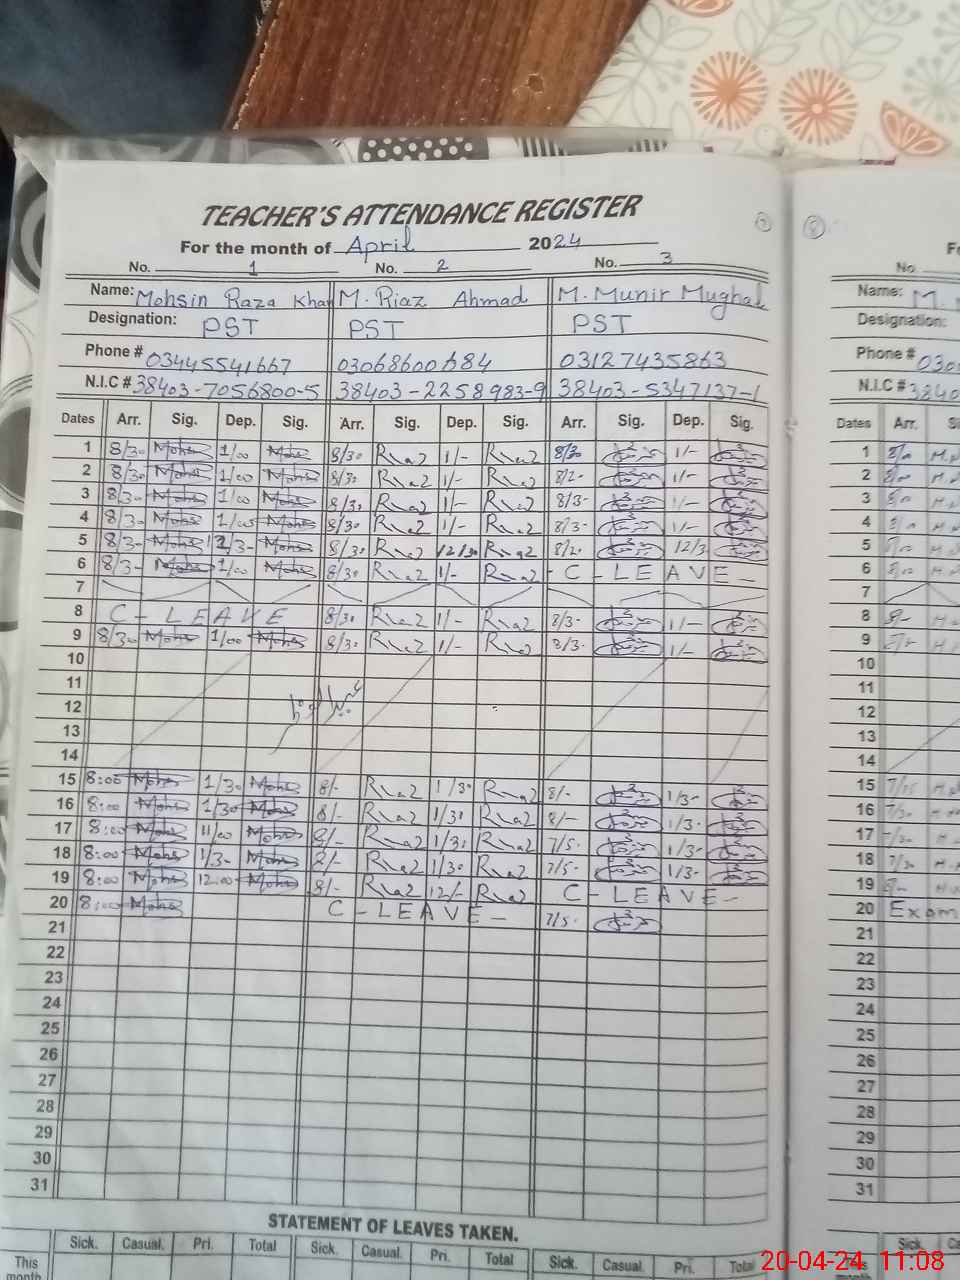 TEACHER'S ATTENDANCE REGISTER
For the month of April 2024
No. 1 No. 2 No. 3
Name: Mohsin Raza Khan M. Riaz Ahmad M. Munir Mughal
Designation: PST PST PST
Phone # 03445541667 03068600684 03127435863
N.I.C # 38403-7056800-5 38403-2258983-9 38403-5347137-1
Dates Arr. Sig. Dep. Sig. Arr. Sig. Dep. Sig. Arr. Sig. Dep. Sig.
1 8/30 Mohs 1/00 Mohs 8/30 Riaz 1/- Riaz 8/30 1/-
2 8/30 Mohs 1/00 Mohs 8/30 Riaz 1/- Riaz 1/-
3 8/30 Mohs 1/00 Mohs 8/30 Riaz 1/- Riaz 8/3- 1/-
4 8/30 Mohs Mohs 8/30 Riaz 1/- Riaz 8/3- 1/-
5 8/3- Mohs Mohs 8/30 Riaz 12/30 Riaz 12/3
6 8/3- Mohs 1/00 Mohs 8/30 Riaz 1/- Riaz C-LEAVE-
7
8 C-LEAVE 8/30 Riaz 1/- Riaz 8/3- 1/-
9 8/30 Mohs 1/00 Mohs 8/30 Riaz 1/- Riaz 8/3- 1/-
10
11
12 عیدالفطر
13
14
15 8:00 Mohs 1/30 Mohs 8/- Riaz 1/30 Riaz 8/- 1/3-
16 8:00 Mohs 1/30 Mohs 8/- Riaz 1/30 Riaz 8/- 1/3-
17 8:00 Mohs 11/00 Mohs 8/- Riaz 1/30 Riaz 7/5- 1/3-
18 8:00 Mohs 1/3- Mohs 8/- Riaz 1/30 Riaz 7/5- 1/3-
19 8:00 Mohs 12:00 Mohs 8/- Riaz 12/- Riaz C-LEAVE-
20 8:00 Mohs C-LEAVE- 7/5-
21
22
23
24
25
26
27
28
29
30
31
STATEMENT OF LEAVES TAKEN.
Sick. Casual. Pri. Total Sick. Casual. Pri. Total Sick. Casual. Pri. Total
This month
8
No
Name: M.
Designation:
Phone # 030
N.I.C # 3840
Dates Arr.
1
2
3
4
5
6
7
8
9
10
11
12
13
14
15
16
17
18
19
20 Exam
21
22
23
24
25
26
27
28
29
30
31
Sick.
This month
20-04-24 11:08